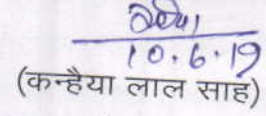 10.6.19
(कन्हैया लाल साह)